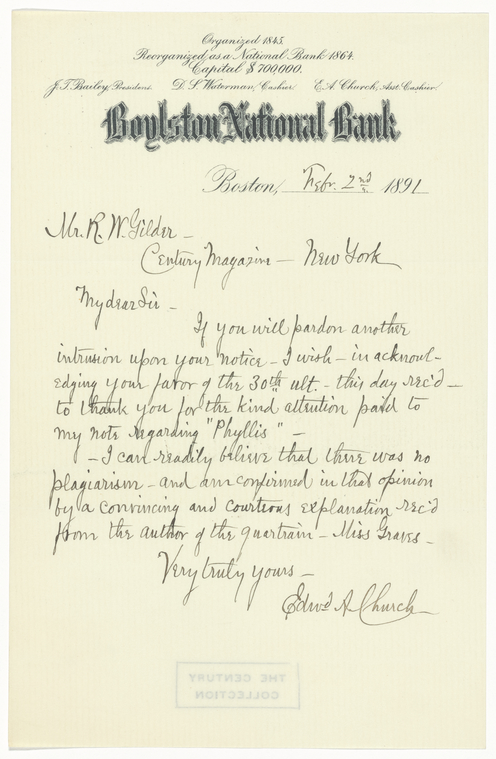 Organized 1845.
Reorganized as a National Bank 1864.
Capital $700,000.
J.T. Bailey, President. D.S. Waterman, Cashier. E.A. Church, Asst. Cashier.
Boylston National Bank
Boston, Febr. 2nd 1891
Mr. R. W. Gilder –
Century Magazine – New York
My dear Sir –
If you will pardon another
intrusion upon your notice – I wish – in acknowl-
edging your favor of the 30th ult. – this day rec'd –
to thank you for the kind attention paid to
my note regarding "Phyllis" –
– I can readily believe that there was no
plagiarism – and am confirmed in that opinion
by a convincing and courteous explanation rec'd
from the author of the quartrain – Miss Graves –
Very truly yours –
Edwd A. Church
THE CENTURY
COLLECTION